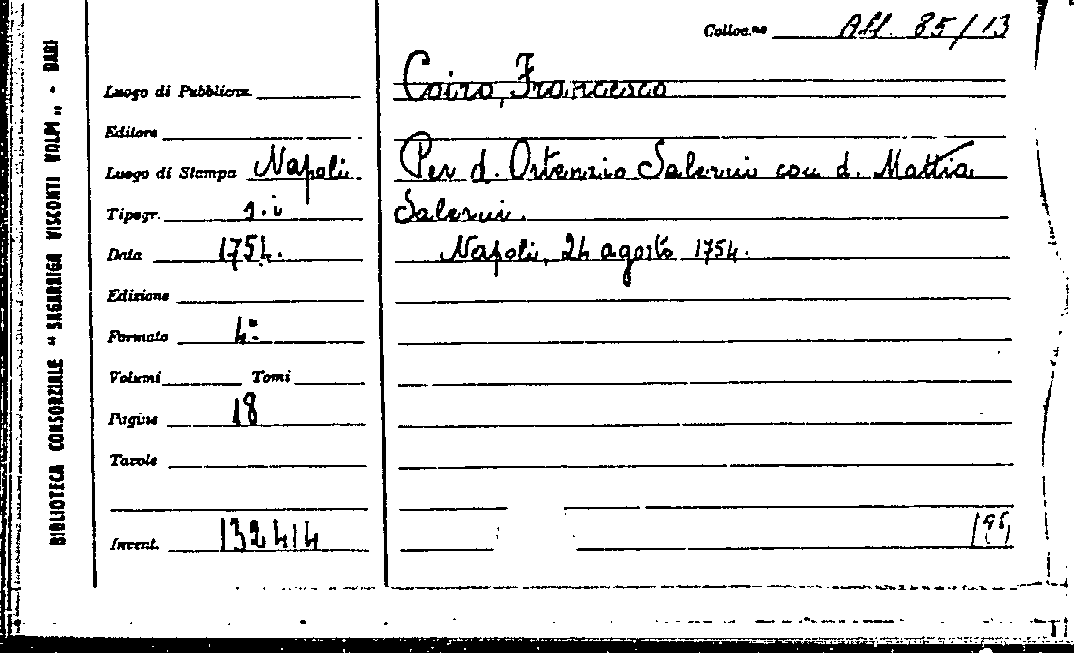 Colloc.ne All. 85/13
BIBLIOTECA CONSORZIALE "SAGARRIGA VISCONTI VOLPI" - BARI
Cairo, Francesco
Luogo di Pubblicaz.
Editore
Luogo di Stampa Napoli.
Per d. Ortenzio Salerni con d. Mattia
Tipogr. s. i
Salerni.
Data 1754.
Napoli, 24 agosto 1754.
Edizione
Formato 4º
Volumi Tomi
Pagine 18
Tavole
Invent. 132414